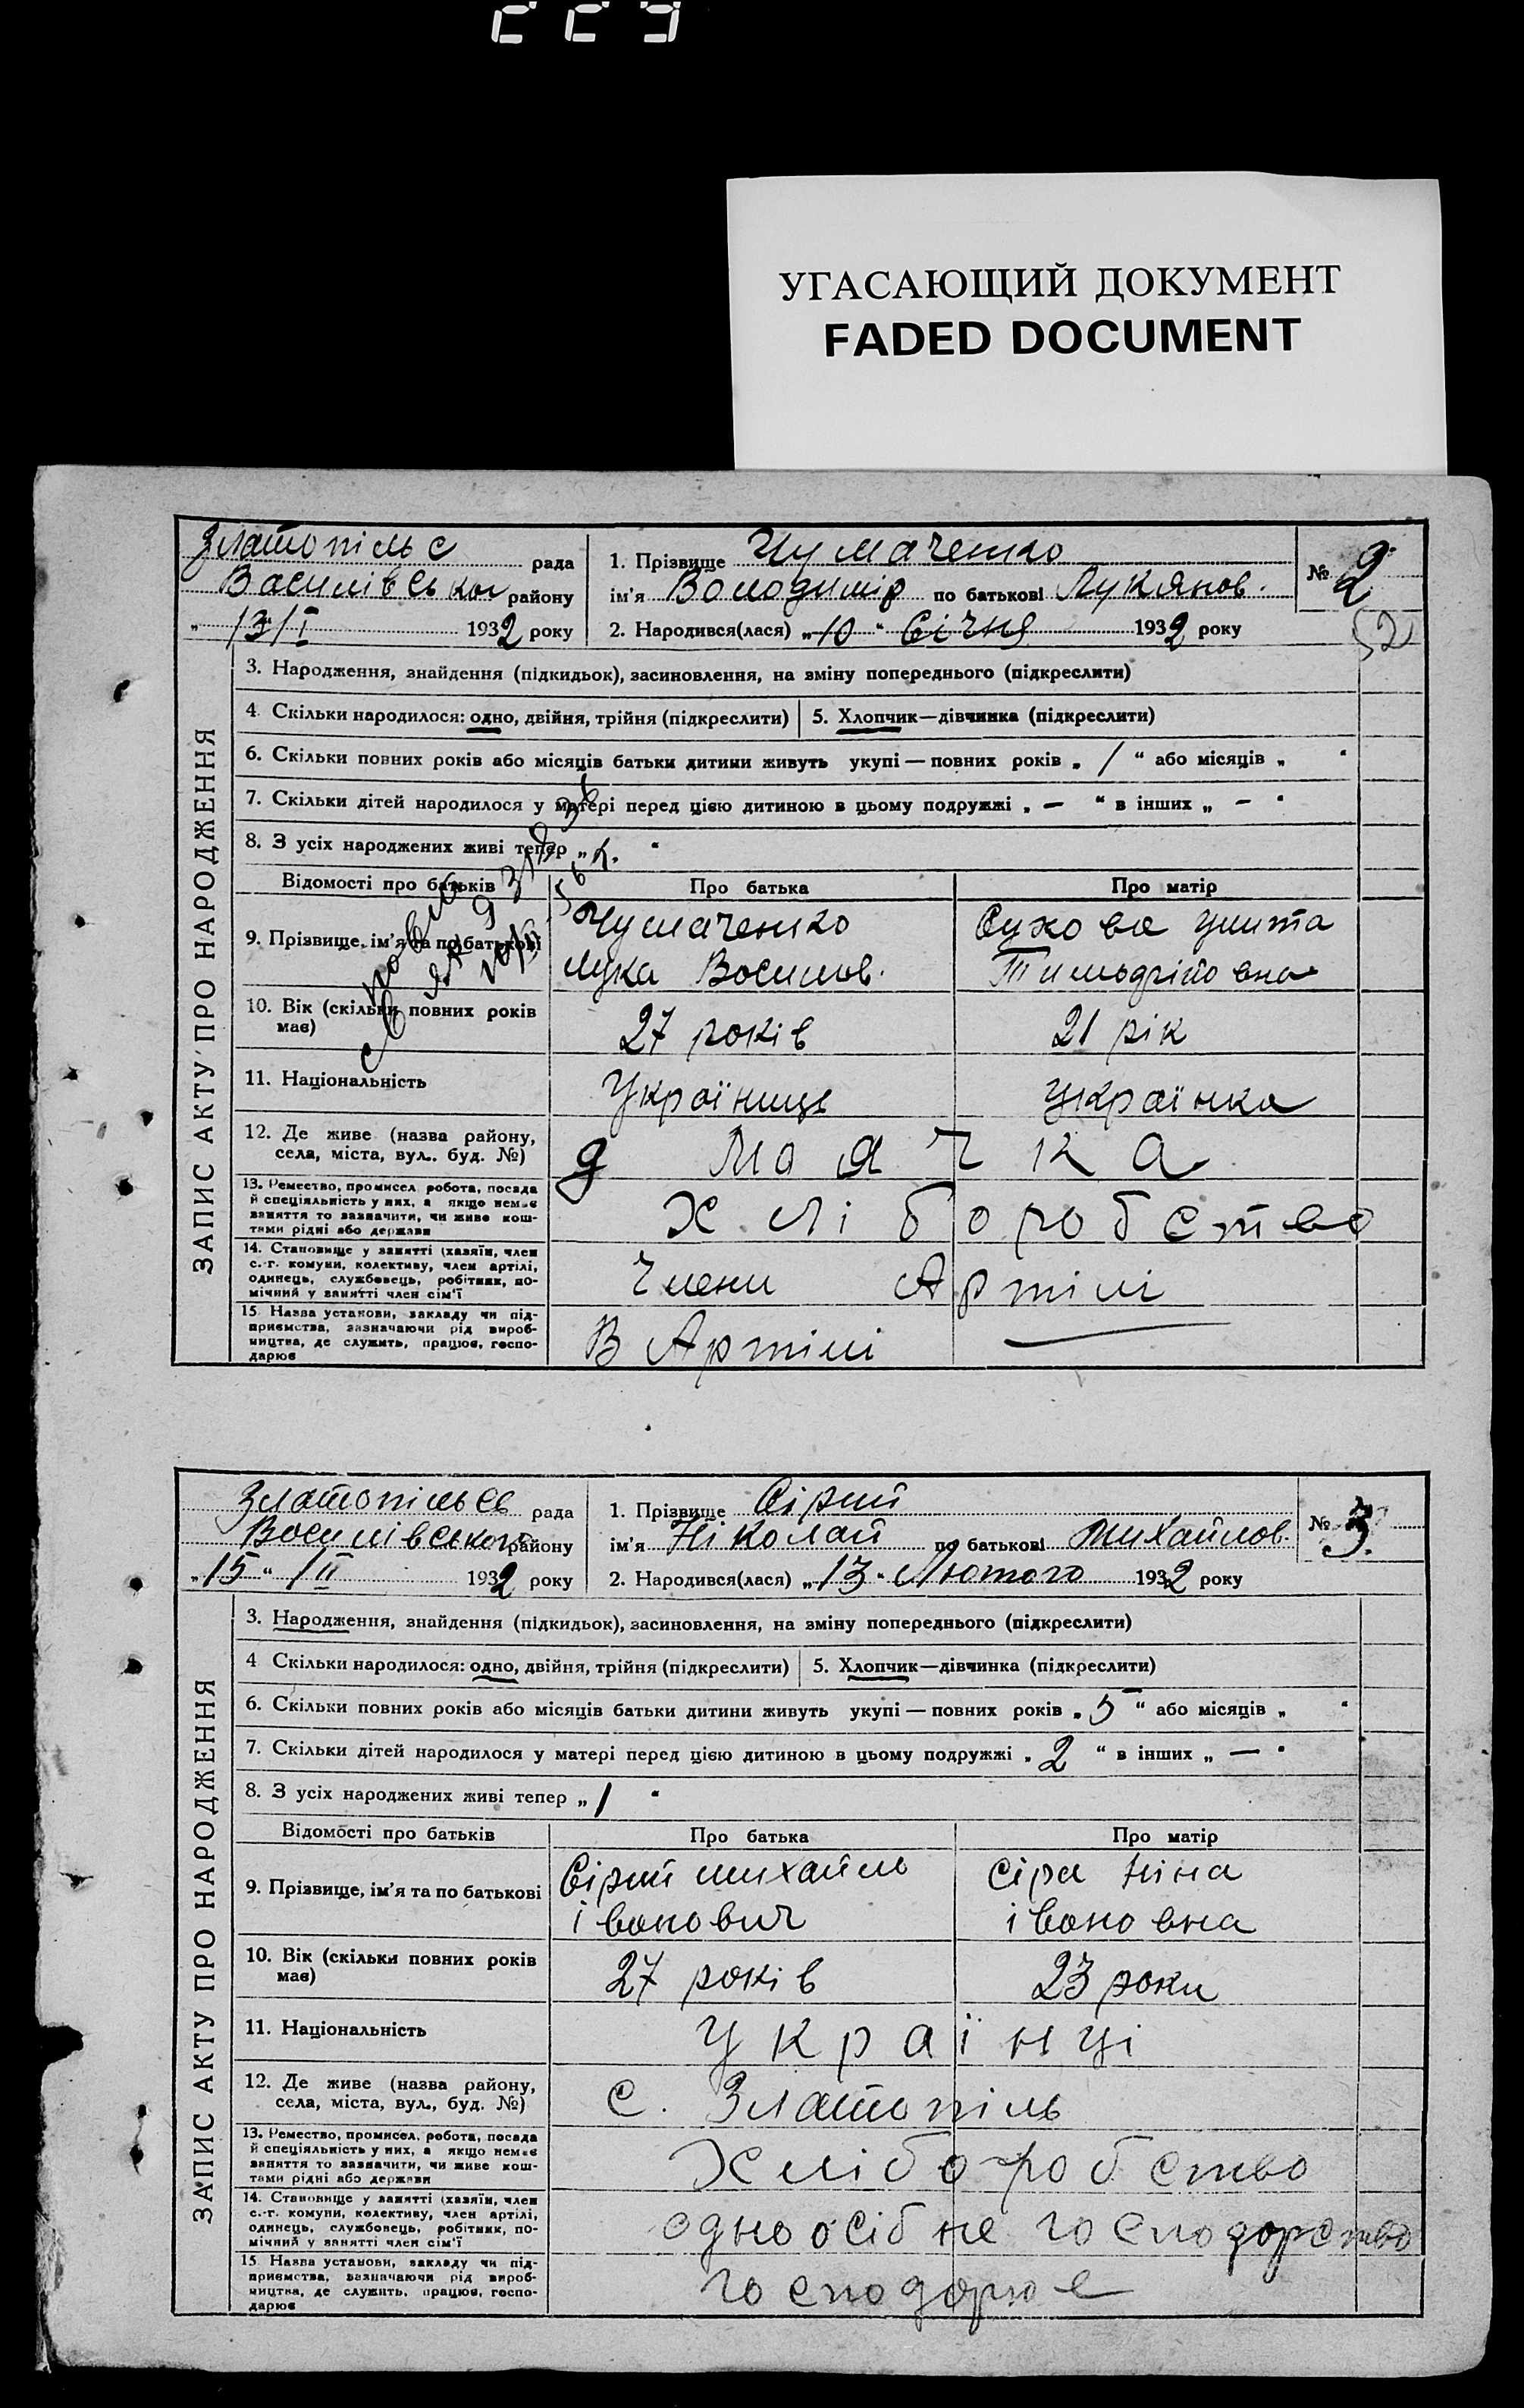 УГАСАЮЩИЙ ДОКУМЕНТ
FADED DOCUMENT
ЗАПИС АКТУ ПРО НАРОДЖЕННЯ
Златопільс рада
Василівської району
"13/I 1932 року
1. Прізвище Чумаченко
ім'я Володимір по батькові Лукянов.
2. Народився(лася) „10" Січня 1932 року
№ 2
(2)
3. Народження, знайдення (підкидьок), засиновлення, на зміну попереднього (підкреслити)
4. Скільки народилося: одно, двійня, трійня (підкреслити) 5. Хлопчик—дівчинка (підкреслити)
6. Скільки повних років або місяців батьки дитини живуть укупі — повних років „ / " або місяців „ "
7. Скільки дітей народилося у матері перед цією дитиною в цьому подружжі „ — " в інших „ — "
8. З усіх народжених живі тепер „ "
Відомості про батьків Про батька Про матір
9. Прізвище, ім'я та по батькові
Чумаченко
Лука Василов.
Сухова
10. Вік (скільки повних років має) 27 років 21 рік
11. Національність Українець Українка
12. Де живе (назва району, села, міста, вул., буд. №) д Маячка
13. Ремество, промисел, робота, посада й спеціяльність у них, а якщо немає заняття то зазначити, чи живе коштами рідні або держави Хліборобство
14. Становище у занятті (хазяїн, член с.-г. комуни, колективу, член артілі, одинець, службовець, робітник, помічний у занятті член сім'ї Члени Артілі
15. Назва установи, закладу чи підприємства, зазначаючи рід виробництва, де служить, працює, господарює В Артілі
ЗАПИС АКТУ ПРО НАРОДЖЕННЯ
Златопільсь рада
Василівського району
„15" /II 1932 року
1. Прізвище Сірий
ім'я Ніколай по батькові Михайлов.
2. Народився(лася) „13" Лютого 1932 року
№ 3.
3. Народження, знайдення (підкидьок), засиновлення, на зміну попереднього (підкреслити)
4 Скільки народилося: одно, двійня, трійня (підкреслити) 5. Хлопчик—дівчинка (підкреслити)
6. Скільки повних років або місяців батьки дитини живуть укупі — повних років „ 5 " або місяців „ "
7. Скільки дітей народилося у матері перед цією дитиною в цьому подружжі „ 2 " в інших „ — "
8. З усіх народжених живі тепер „ 1 "
Відомості про батьків Про батька Про матір
9. Прізвище, ім'я та по батькові
Сірий Михайло Сіра Ніна
Іванович Івановна
10. Вік (скільки повних років має) 27 років 23 роки
11. Національність Українці
12. Де живе (назва району, села, міста, вул., буд. №) с. Златопіль
13. Ремество, промисел, робота, посада й спеціяльність у них, а якщо немає заняття то зазначити, чи живе коштами рідні або держави Хліборобство
14. Становище у занятті (хазяїн, член с.-г. комуни, колективу, член артілі, одинець, службовець, робітник, помічний у занятті член сім'ї одноосібне господорство
15 Назва установи, закладу чи підприємства, зазначаючи рід виробництва, де служить, працює, господарює господорює